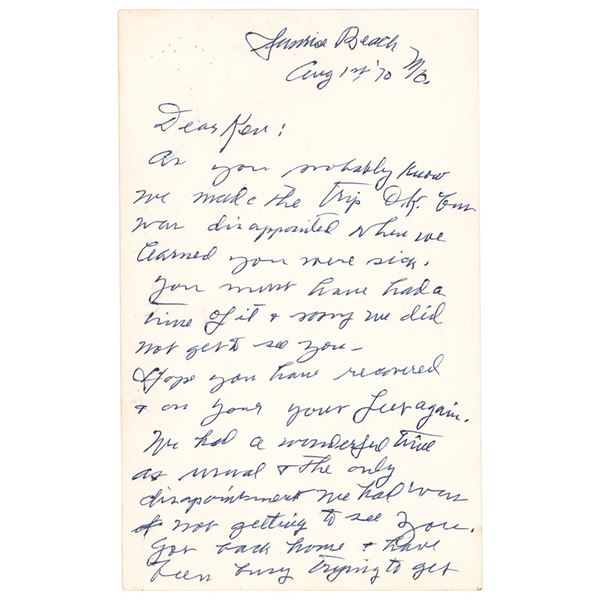 Sunrise Beach
Aug 1st '70 Mo.
Dear Ken:
As you probably know
we made the trip O.K. but
was disappointed when we
learned you were sick.
You must have had a
time of it & sorry we did
not get to see you-
Hope you have recovered
& on your your feet again.
We had a wonderful time
as usual & the only
disappointment we had was
of not getting to see you.
Got back home & have
been busy trying to get